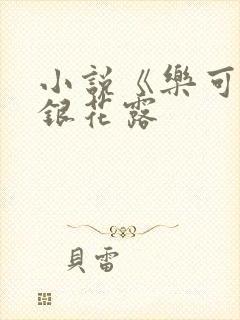 小說《樂可
銀花露
貝雷